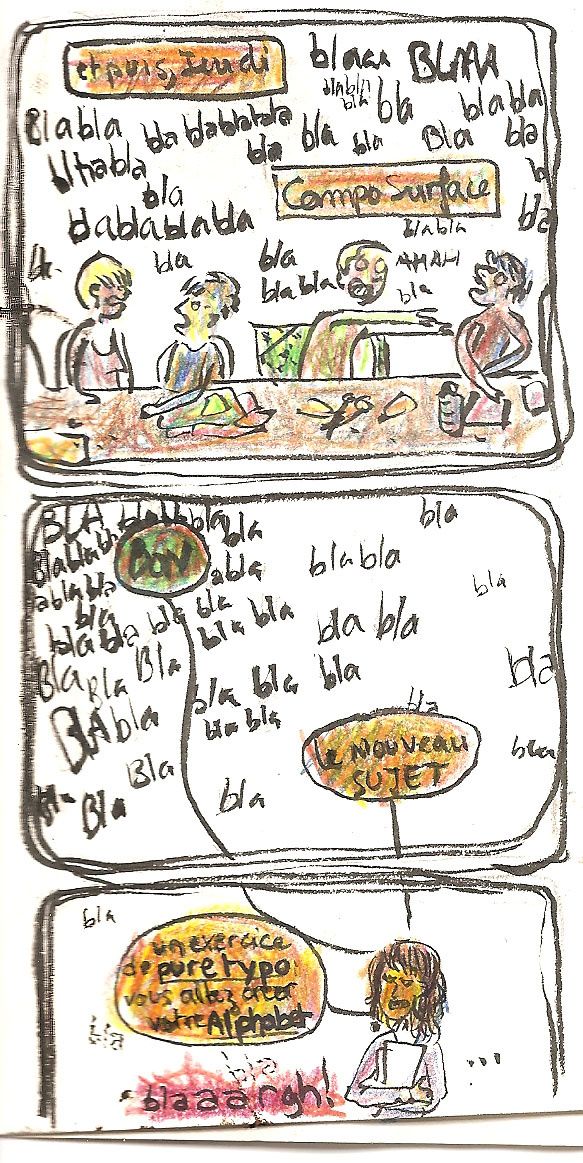 et puis, Jeudi
blaaa BLAAA
blabla
bla
bla
blabla
Blabla
bla blablablabla
bla
bla
bla
Bla
bla
blabla
bla
blablablabla
Compo Surface
blabla
bla
bla
bla
blabla
AHAH
bla
bla
BLA
blablabla
bla
BON
bla
blabla
bla
blabla
bla
bla
bla
bla
bla bla
bla bla
Bla
Bla
Bla
bla bla
bla
bla
bla bla
bla
BLAbla
Bla
Bla
bla
le NOUVEAU
SUJET
bla
bla
un exercice
de pure typo,
vous allez créer
votre Alphabet
bla
blaaargh!
...